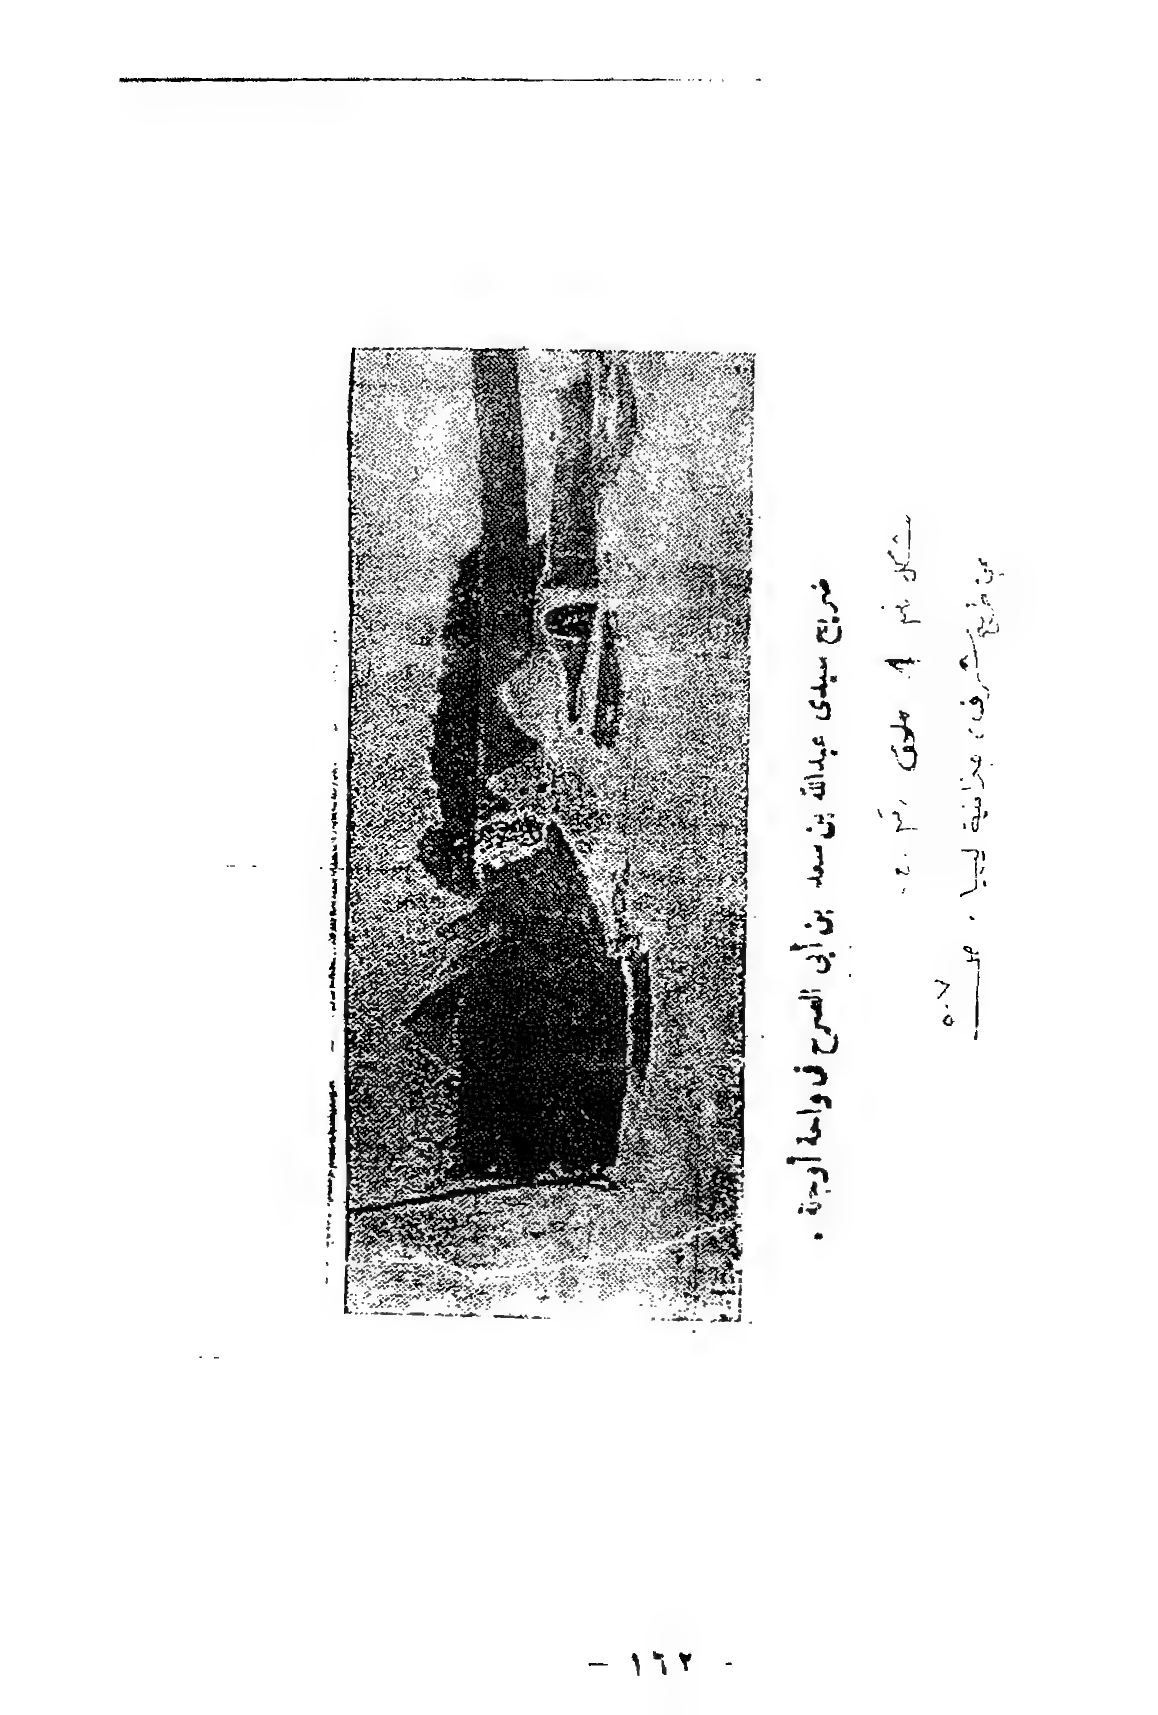 ضريح سيدى عبدالله بن سعد بن أبى السرح فى واحة أوجلة .
شكل رقم ٩ ملحق رقم
شرف، جغرافية ليبيا، صـ
٥٠٧
- ١٦٢ -